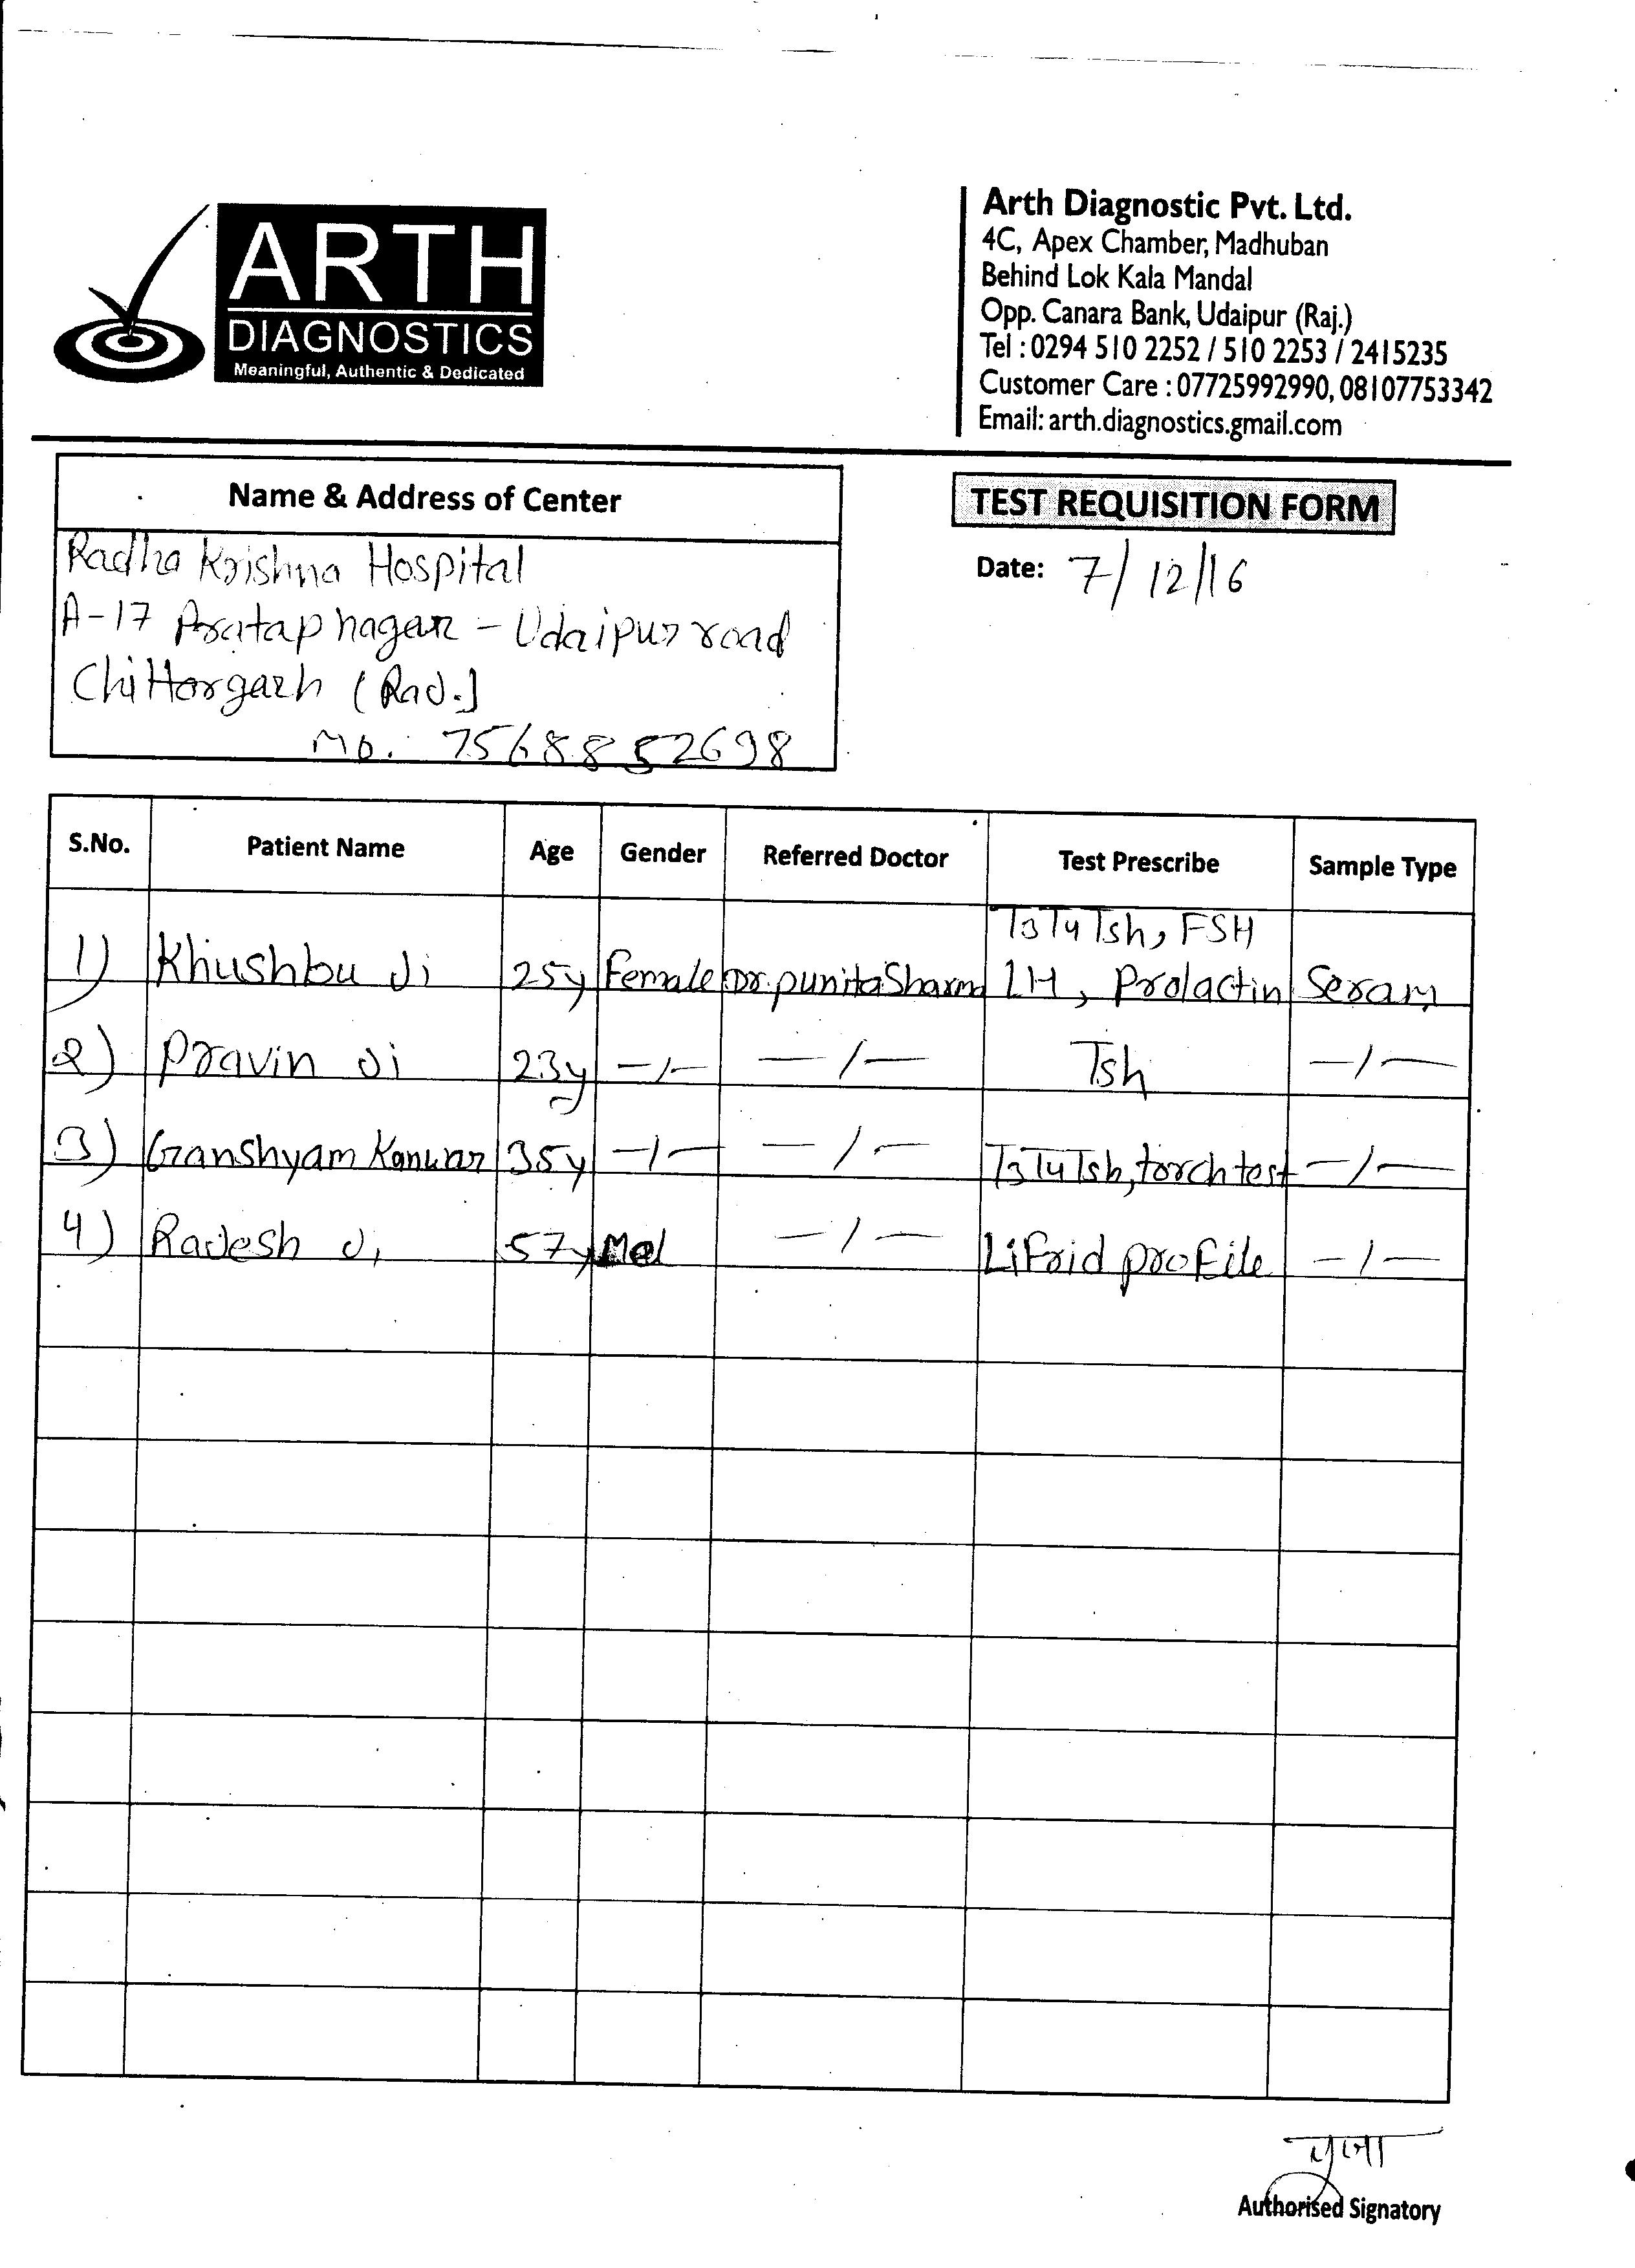 ARTH
DIAGNOSTICS
Meaningful, Authentic & Dedicated
Arth Diagnostic Pvt. Ltd.
4C, Apex Chamber, Madhuban
Behind Lok Kala Mandal
Opp. Canara Bank, Udaipur (Raj.)
Tel : 0294 510 2252 / 510 2253 / 2415235
Customer Care : 07725992990, 08107753342
Email: arth.diagnostics.gmail.com
Name & Address of Center
Radha Krishna Hospital
A-17 Pratap nagar - Udaipur road
Chittorgarh (Raj.)
Mo. 7568852698
TEST REQUISITION FORM
Date: 7/12/16
S.No. Patient Name Age Gender Referred Doctor Test Prescribe Sample Type
T3 T4 Tsh, FSH
1) Khushbu Ji 25y Female Dr. punita Sharma LH, Prolactin Seram
2) Pravin Ji 23y -/- -/- Tsh -/-
3) Ganshyam Kanwar 35y -/- -/- T3 T4 Tsh, torch test -/-
4) Rajesh Ji 57y Mal -/- Lifrid profile -/-
पुजा
Authorised Signatory